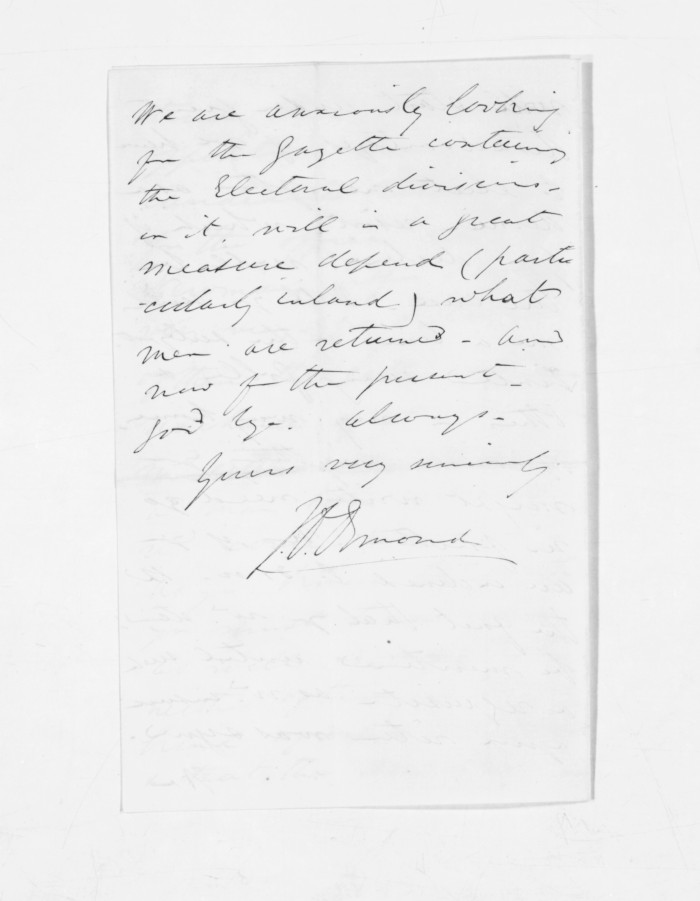 We are anxiously looking
for the Gazette containing
the Electoral divisions -
on it will in a great
measure depend (partic
-cularly inland) what
men are returned - and
now for the present -
good bye. always -
Yours very sincerely
J.D. Ormond